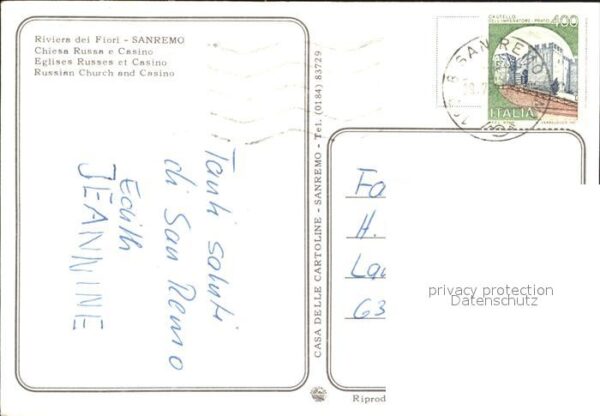 Riviera dei Fiori - SANREMO
Chiesa Russa e Casino
Eglises Russes et Casino
Russian Church and Casino
Tanti saluti
di San Remo
Edith
JEANNINE
CASA DELLE CARTOLINE - SANREMO - Tel. (0184) 83729
CASTELLO
DELL'IMPERATORE - PRATO
400
ITALIA
SAN REMO
Fa
H.
Lau
63
privacy protection
Datenschutz
Riprod